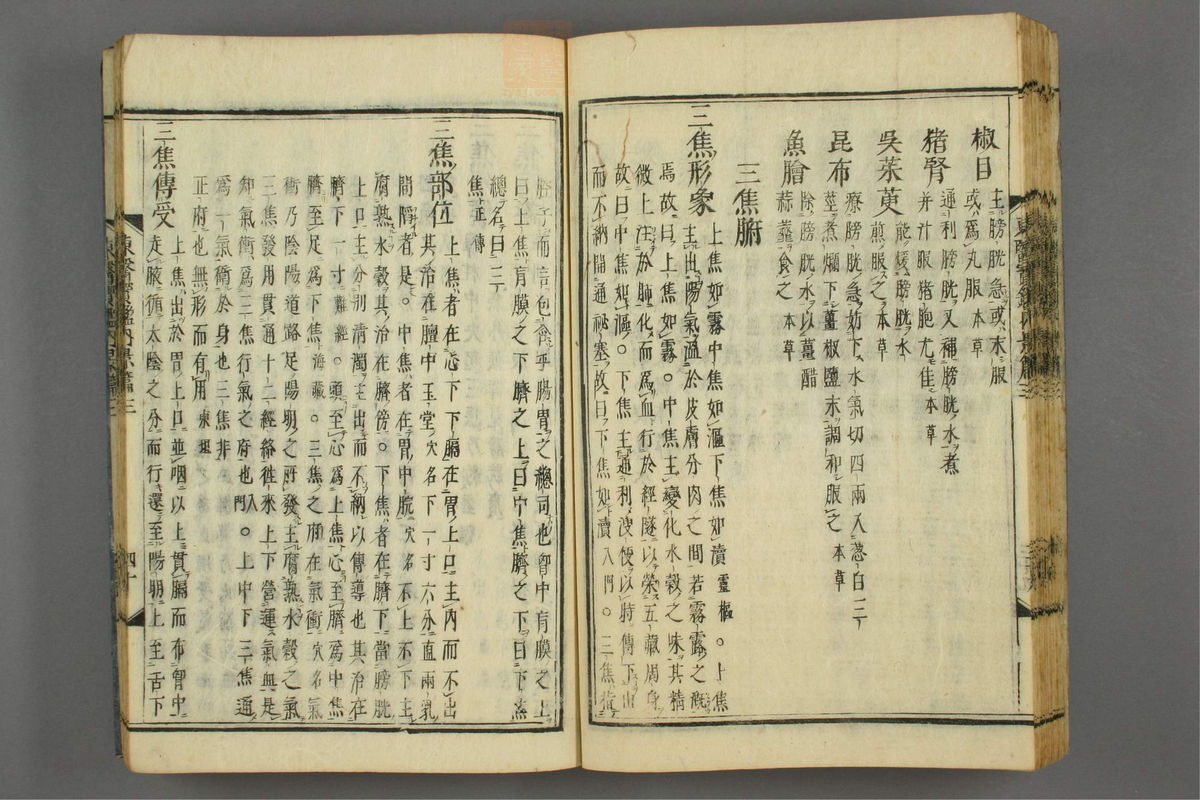 椒目 主膀胱急或末服
或爲丸服本草
猪腎 通利膀胱又補膀胱水煮
并汁服猪胞尤佳本草
吳茱萸 能煖膀胱水
煎服之本草
昆布 療膀胱急妨下水氣切四兩入葱白三
莖煮爛下薑椒鹽末調和服之本草
魚膾 除膀胱水以薑醋
蒜虀食之本草
三焦腑
三焦形象 上焦如霧中焦如漚下焦如瀆靈樞○上焦
主出陽氣溫於皮膚分肉之間若霧露之漑
焉故曰上焦如霧○中焦主變化水穀之味其精
微上注於肺化而爲血行於經隧以榮五藏周身
故曰中焦如漚○下焦主通利溲便以時傳下出
而不納開通祕塞故曰下焦如瀆入門○三焦指
腔子而言包含乎腸胃之總司也胷中肓膜之上
曰上焦肓膜之下臍之上曰中焦臍之下曰下焦
總名曰三
焦正傳
三焦部位 上焦者在心下下膈在胃上口主內而不出
其治在膻中玉堂穴名下一寸六分直兩乳
間陷者是○中焦者在胃中脘穴名不上不下主
腐熟水穀其治在臍傍○下焦者在臍下當膀胱
上口主分別淸濁主出而不納以傳導也其治在
臍下一寸難經○頭至心爲上焦心至臍爲中焦
臍至足爲下焦海藏○三焦之府在氣衝穴名氣
衝乃陰陽道路足陽明之所發主腐熟水穀之氣
三焦發用貫通十二經絡徃來上下營運氣與是
知氣衝爲三焦行氣之府也入門○上中下三焦通
爲一氣衛於身也三焦非
正府也無形而有用東垣
三焦傳受 上焦出於胃上口並咽以上貫膈而布胷中
走腋循太陰之分而行還至陽明上至舌下
東醫寶鑑內景篇三
四十